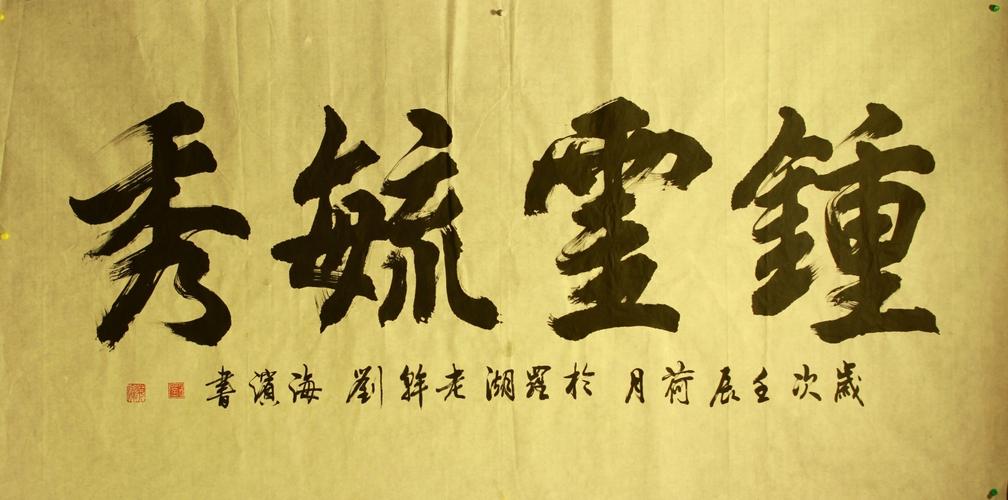 鍾靈毓秀
歲次壬辰荷月於羅湖老幹劉海濱書